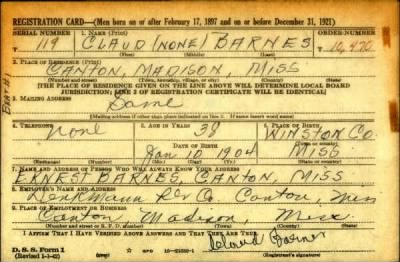 REGISTRATION CARD—(Men born on or after February 17, 1897 and on or before December 31, 1921)
SERIAL NUMBER 1. NAME (Print) ORDER NUMBER
119 CLAUD (NONE) BARNES 10,470
(First) (Middle) (Last)
2. PLACE OF RESIDENCE (Print)
CANTON, MADISON, MISS
(Number and street) (Town, township, village, or city) (County) (State)
[THE PLACE OF RESIDENCE GIVEN ON THE LINE ABOVE WILL DETERMINE LOCAL BOARD
JURISDICTION; LINE 2 OF REGISTRATION CERTIFICATE WILL BE IDENTICAL]
3. MAILING ADDRESS
Same
[Mailing address if other than place indicated on line 2. If same insert word same]
4. TELEPHONE 5. AGE IN YEARS 6. PLACE OF BIRTH
None 38 WINSTON CO.
DATE OF BIRTH (Town or county)
Jan 10 1904 MISS
(Exchange) (Number) (Mo.) (Day) (Yr.) (State or country)
7. NAME AND ADDRESS OF PERSON WHO WILL ALWAYS KNOW YOUR ADDRESS
ERNEST BARNES, CANTON, MISS
8. EMPLOYER'S NAME AND ADDRESS
Denkmann Lbr Co. Canton, Miss
9. PLACE OF EMPLOYMENT OR BUSINESS
Canton Madison, Miss
(Number and street or R. F. D. number) (Town) (County) (State)
I AFFIRM THAT I HAVE VERIFIED ABOVE ANSWERS AND THAT THEY ARE TRUE.
D. S. S. Form 1 Claud Barnes
(Revised 1-1-42) (Registrant's signature)